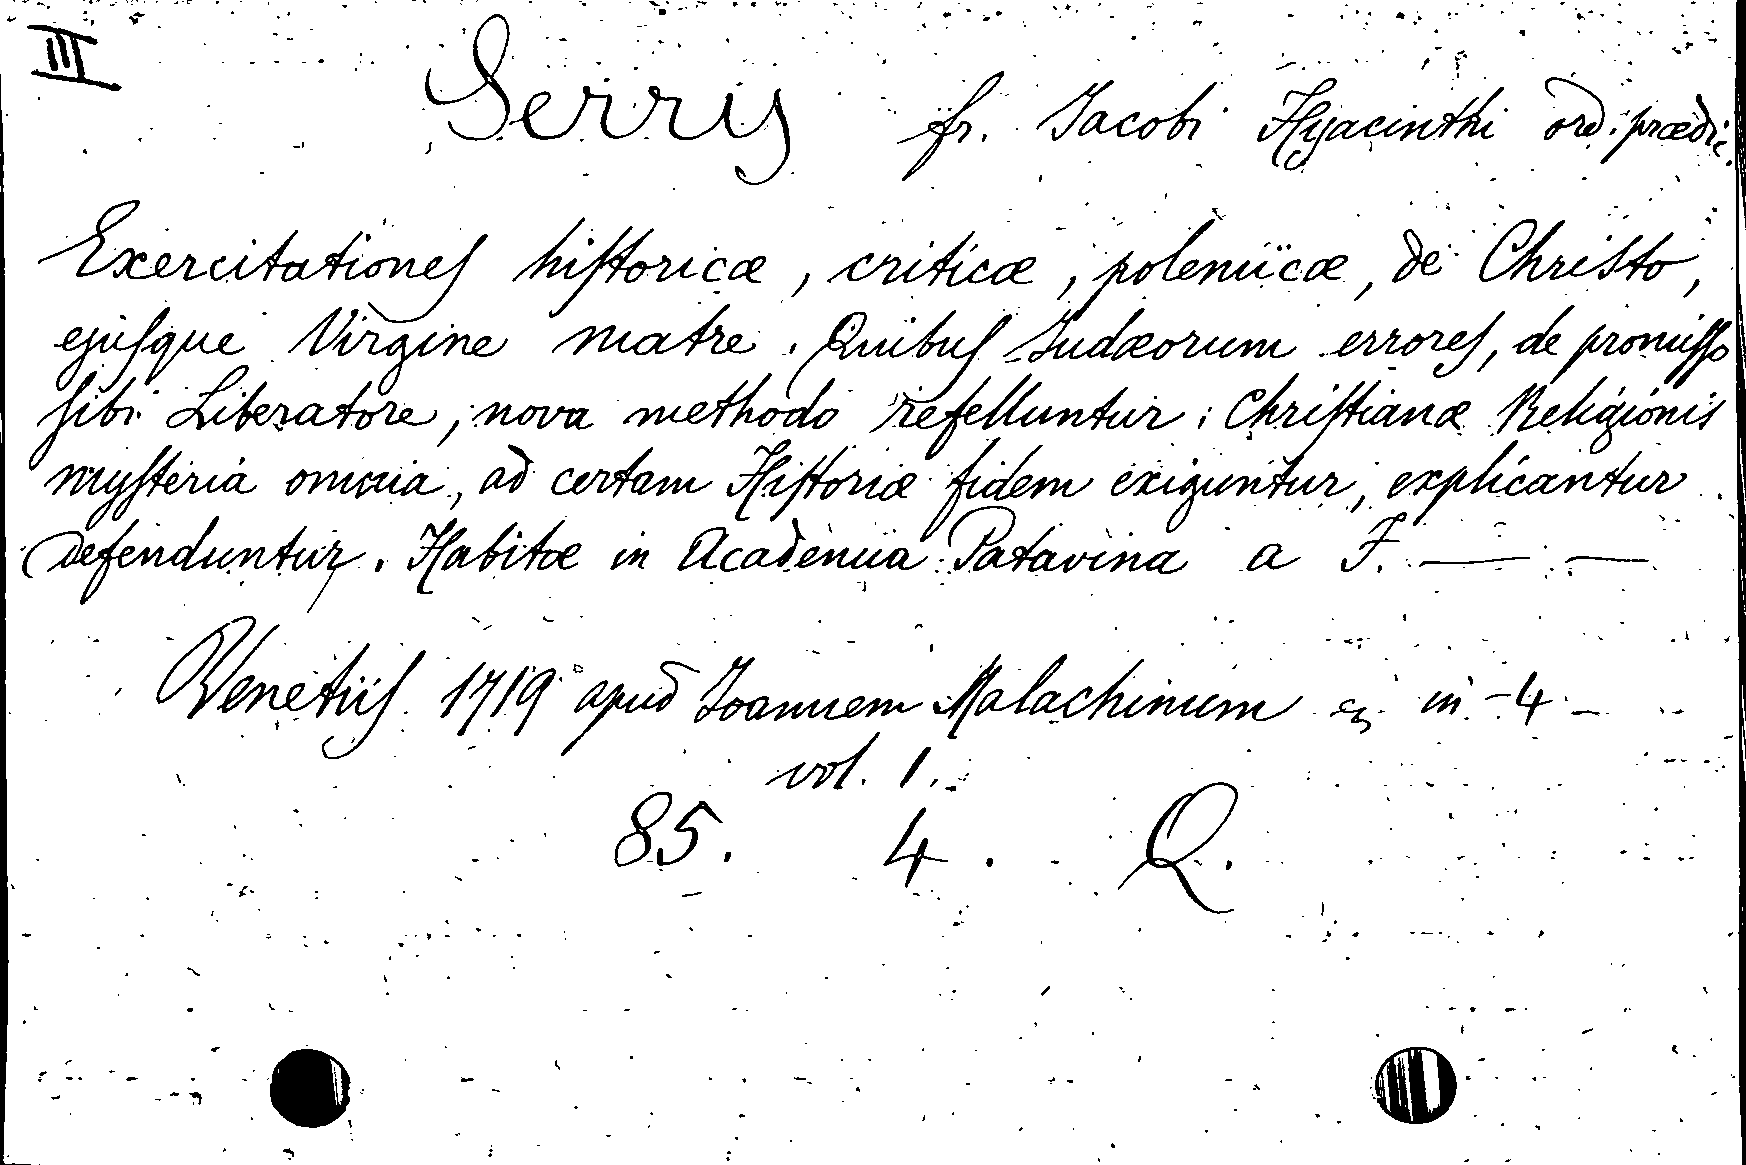 III
Serry fr. Jacobi Hyacinthi ord. prædic.
Exercitationeſ hiſtoricæ, criticæ, polemicæ, de Christo,
ejuſque Virgine matre. Quibuſ Judæorum erroreſ, de promiſſo
ſibi Liberatore, nova methodo refelluntur: Chriſtianæ Religionis
myſteria omnia, ad certam Hiſtoriæ fidem exiguntur, explicantur
defenduntur. Habitæ in Academia Patavina a F. — —
Venetiiſ 1719 apud Joannem Malachinum in-4-
vol. 1.
85. 4. Q.